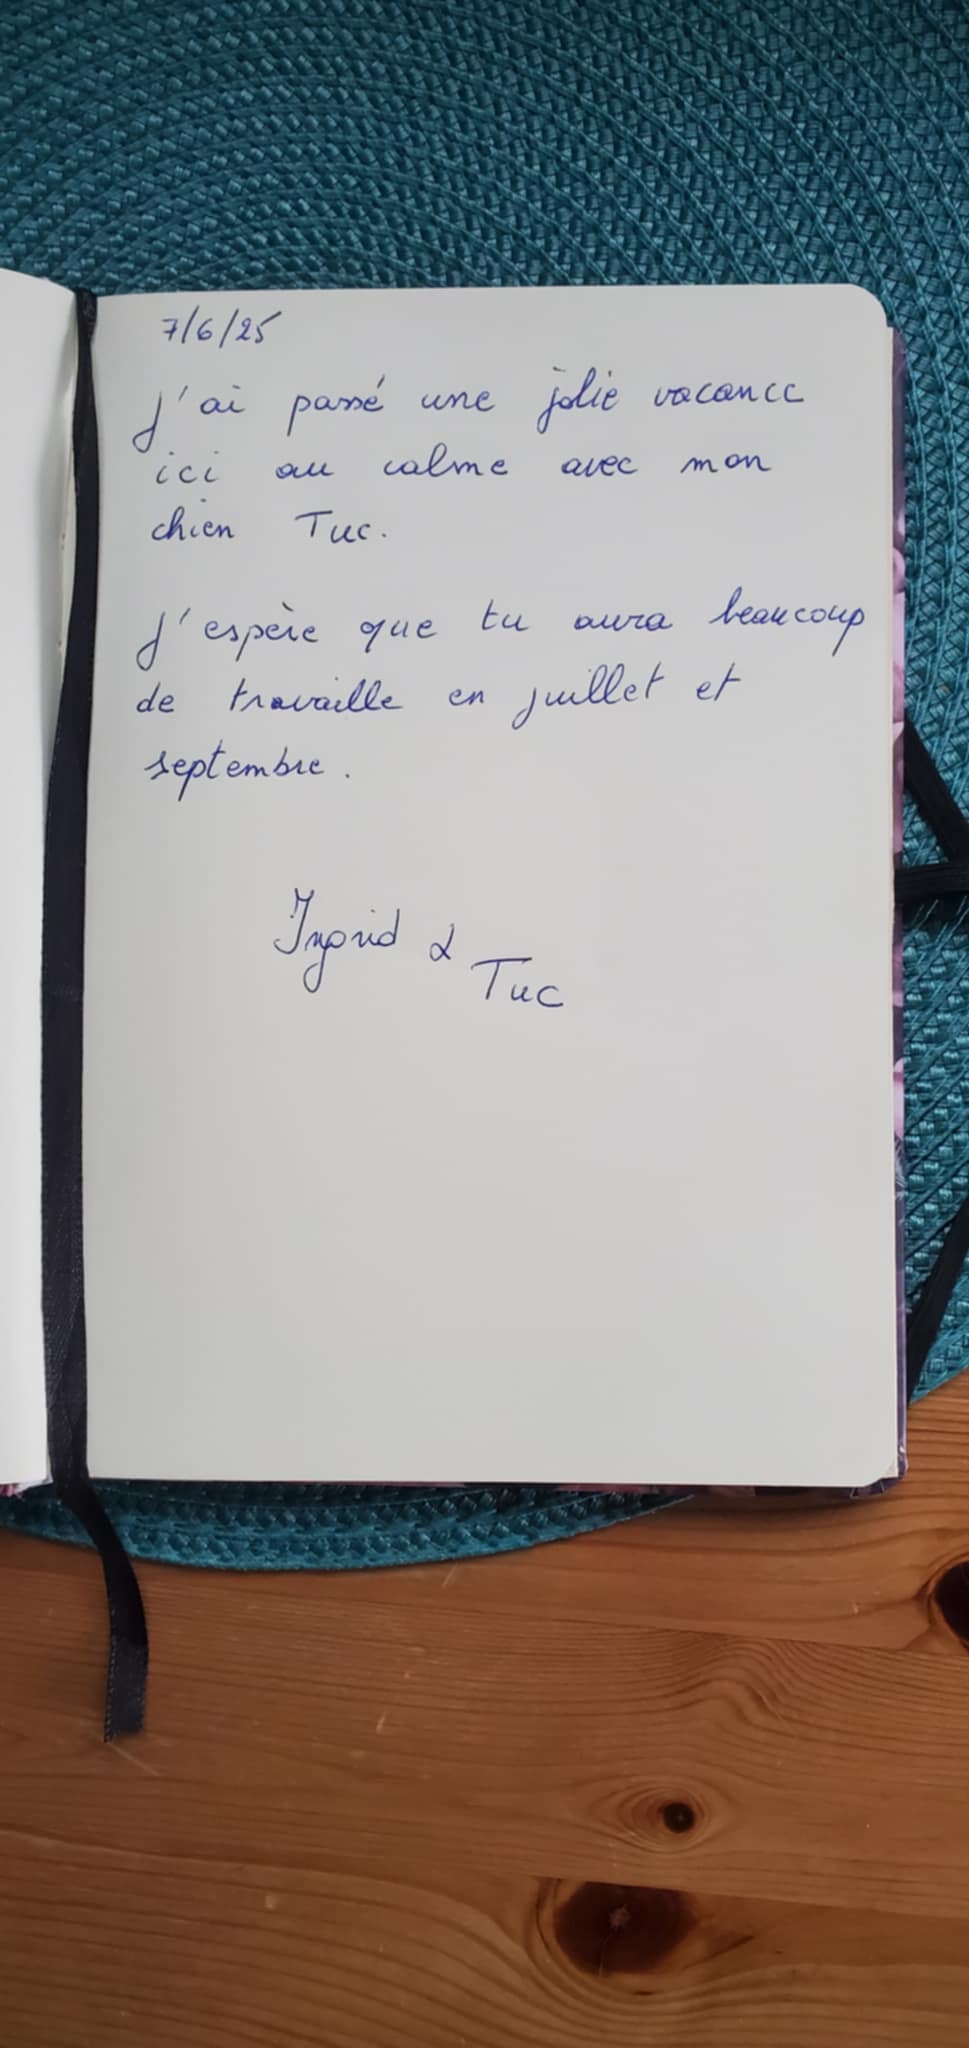 7/6/25
J'ai passé une jolie vacance
ici au calme avec mon
chien Tuc.
J'espère que tu aura beaucoup
de travaille en juillet et
septembre.
Ingrid &
Tuc